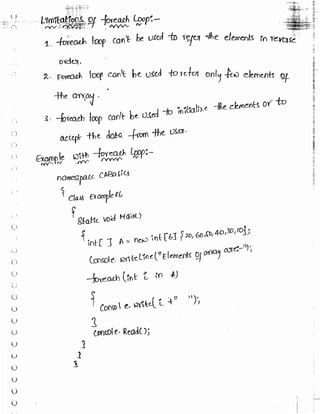 Limitations of foreach Loop:-
1. foreach loop can't be used to refer the elements in reverse
order.
2. Foreach loop can't be used to refer only few elements of
the array.
3. foreach loop can't be used to initialize the elements or to
accept the data from the user.
Example with foreach Loop:-
namespace CABasics
{
class Example6
{
static void Main()
{
int [ ] A = new int[6] {70, 60, 50, 40, 30, 10};
Console.WriteLine("Elements of array are:-");
foreach (int i in A)
{
Console.write( i + " ");
}
Console.Read();
}
}
}